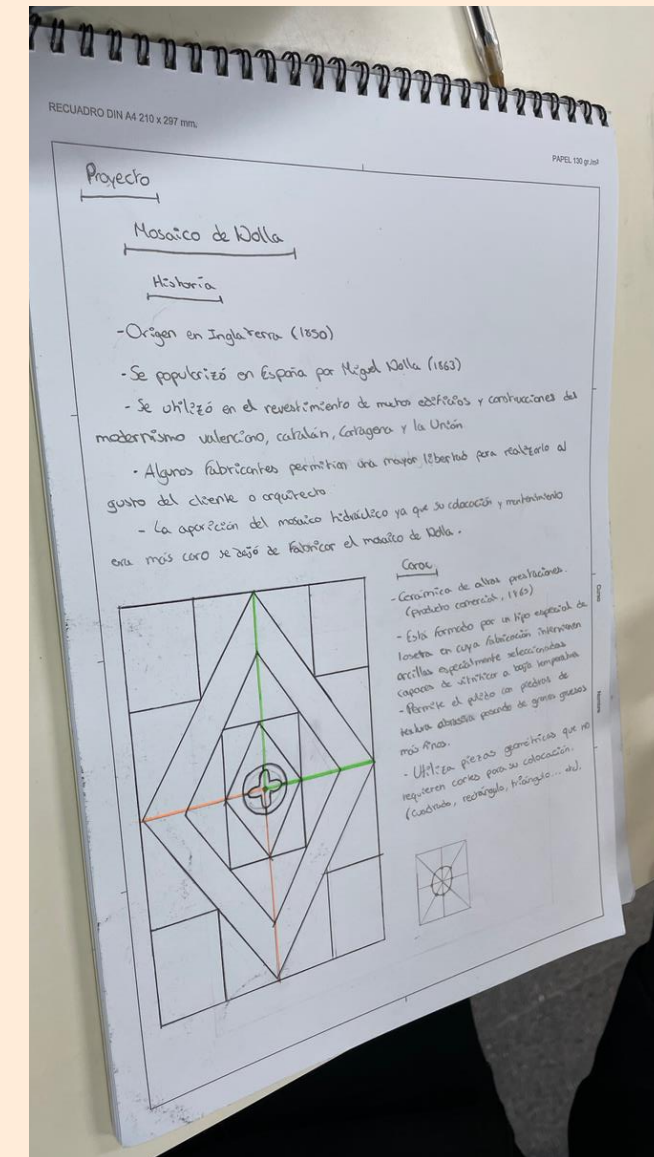 RECUADRO DIN A4 210 x 297 mm.
PAPEL 130 gr./m²
Proyecto
Mosaico de Nolla
Historia
- Origen en Inglaterra (1850)
- Se popularizó en España por Miguel Nolla (1863)
- Se utilizó en el revestimiento de muchos edificios y construcciones del
modernismo valenciano, catalán, Cartagena y la Unión
- Algunos fabricantes permitían una mayor libertad para realizarlo al
gusto del cliente o arquitecto
- La aparición del mosaico hidráulico ya que su colocación y mantenimiento
era más caro se dejó de fabricar el mosaico de Nolla.
Carac.
- Cerámica de altas prestaciones.
(producto comercial, 1863)
- Está formado por un tipo especial de
loseta en cuya fabricación intervienen
arcillas especialmente seleccionadas
capaces de vitrificar a baja temperatura
- Permite el pulido con piedras de
textura abrasiva pasando de granos gruesos
más finos.
- Utiliza piezas geométricas que no
requieren cortes para su colocación.
(cuadrado, rectángulo, triángulo... etc).
Curso
Nombre